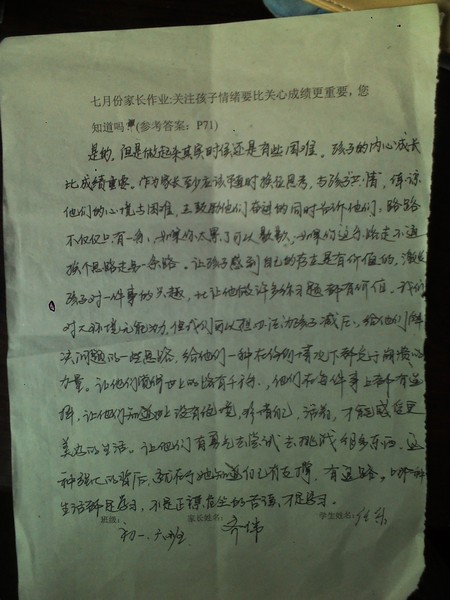 七月份家长作业:关注孩子情绪要比关心成绩更重要，您
知道吗 (参考答案：P71)
是的，但是做起来其实时候还是有些困难，孩子的内心成长
比成绩重要。作为家长至少应该适时换位思考，与孩子共情，体谅
他们的心境与困难，在鼓励他们前进的同时告诉他们：路
不仅仅只有一条，如果你太累了可以歇歇，如果你这条路走不通
换个思路走另一条路。让孩子感到自己的存在是有价值的，激发
孩子对一件事的兴趣，比让他做许多练习题都有价值。我们
对大环境无能为力，但我们可以想办法为孩子减压，给他们解
决问题的一些思路，给他们一种在任何情况下都免于崩溃的
力量。让他们觉得世上的路有千万条，他们在每件事上都有选
择，让他们知道世上没有绝境，珍惜自己，活着，才能感受更
美好的生活。让他们有勇气去尝试去挑战很多东西，这
种强大的背后，就在于她知道自己有支撑，有退路。
生活都是学习，不是正襟危坐的苦读，才是学习。
班级： 家长姓名： 学生姓名：
初一.六班 齐伟